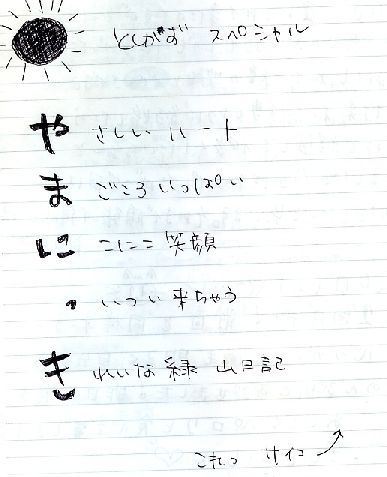 としがず スペシャル
や さしい ハート
ま ごころ いっぱい
に こにこ 笑顔
っ いつい 来ちゃう
き れいな 緑 山日記
これっ サイコ